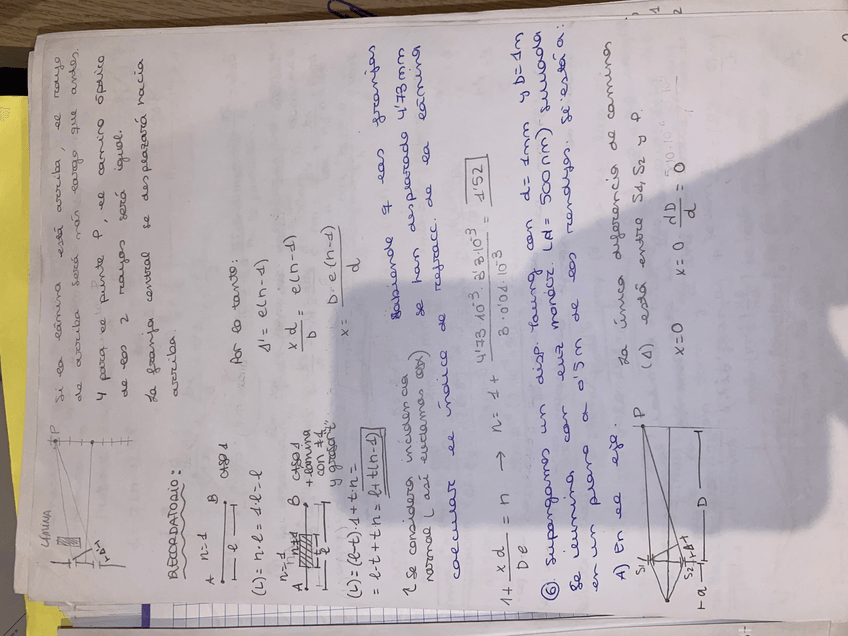 Si la lámina está arriba, el rayo
de arriba será más largo que antes.
Y para el punto P, el camino óptico
de los 2 rayos será igual.
La franja central se desplazará hacia
arriba.
LÁMINA
P
RECORDATORIO:
A n=1 B caso 1
l
(L) = n·l = 1·l = l
n=1
A n≠1 B caso 1
+ lámina
con n≠1
y grosor t
t
l
(L) = (l-t)·1 + t·n =
= l - t + t n = l + t(n-1)
Por lo tanto:
Δ' = e(n-1)
x d / D = e(n-1)
x = D·e(n-1) / d
(Se considera incidencia
normal (así evitamos cosx)
Sabiendo q las franjas
se han desplazado 4'73 mm
calcular el índice de refracc. de la lámina
1 + x d / D e = n → n = 1 + 4'73·10⁻³ · 3'3·10⁻³ / 3·0'01·10⁻³ = 1'52
⑥ Supongamos un disp. Young con d = 1mm y D = 1m
Se ilumina con luz monocr. (λ = 500 nm) situada
en un plano a 0'5 m de las rendijas. Si está a:
A) En el eje.
La única diferencia de caminos
(Δ) está entre S1, S2 y P.
x = 0 x = 0 λD / d = 0
S1
S2
P
a
D